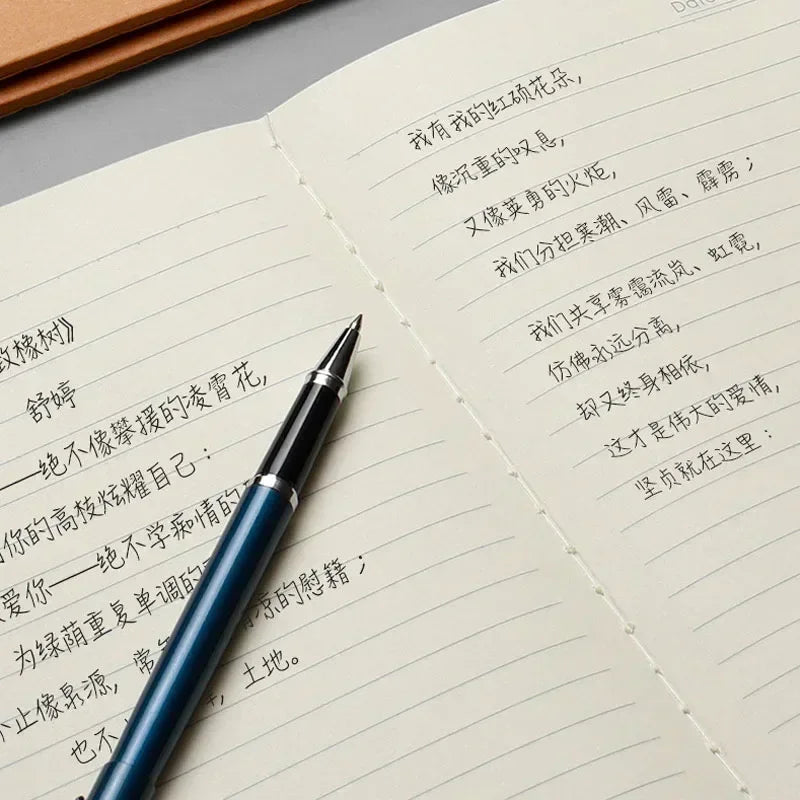 致橡树》
舒婷
——绝不像攀援的凌霄花,
你的高枝炫耀自己:
爱你——绝不学痴情的
为绿荫重复单调的
不止像泉源,常 凉的慰籍;
也不 ,土地。
Date
我有我的红硕花朵,
像沉重的叹息,
又像英勇的火炬,
我们分担寒潮、风雷、霹雳;
我们共享雾霭流岚、虹霓,
仿佛永远分离,
却又终身相依,
这才是伟大的爱情,
坚贞就在这里: